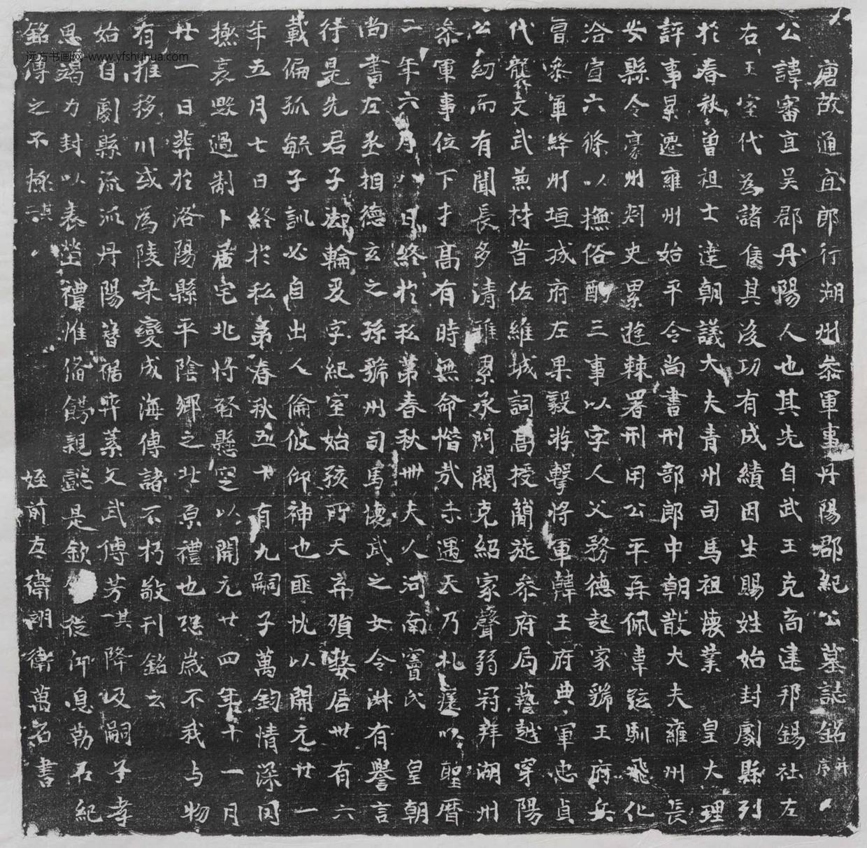 唐故通直郎行湖州參軍事丹陽郡紀公墓誌銘并序
公諱審直吳郡丹陽人也其先自武王克商建邦錫社左
右王室代為諸侯其後功有成績因生賜姓始封劇縣列
於春秋曾祖士達朝議大夫青州司馬祖懷業 皇大理
評事累遷雍州始平令尚書刑部郎中朝散大夫雍州長
安縣令豪州刺史累遊棘署刑用公平再佩韋弦馴飛化
洽宣六條以撫俗酌三事以字人父務德起家虢王府兵
曹參軍絳州垣城府左果毅游擊將軍韓王府典軍忠貞
代襲文武兼材昔佐維城詞高授簡旋參府局藝越穿陽
公幼而有聞長多清雅累承閥克紹家聲弱冠拜湖州
參軍事位下才高有時無命惜哉未遇天乃札瘥以聖曆
二年六月八日終於私第春秋卅夫人河南竇氏 皇朝
尚書左丞相德玄之孫虢州司馬懷武之女令淑有譽言
行是先君子御輪爰字紀室始孩所天弃殞嫠居卅有六
載偏孤毓子訓必自出人倫攸仰神也匪忱以開元廿一
年五月七日終於私第春秋五十有九嗣子萬鈞情深罔
極哀毀過制卜居宅兆將啓懸窆以開元廿四年十一月
廿一日葬於洛陽縣平陰鄉之北原禮也恐歲不我与物
有推移川或為陵桒變成海傳諸不朽敬刊銘云
始自劇縣流派丹陽簪裾弈葉文武傳芳其降及嗣子孝
思竭力封以表塋禮惟備飾親懿是欽従仰息勒石紀
銘傳之不極其 姪前左衛翊衛萬名書
远方书画网-www.vfshuhua.com